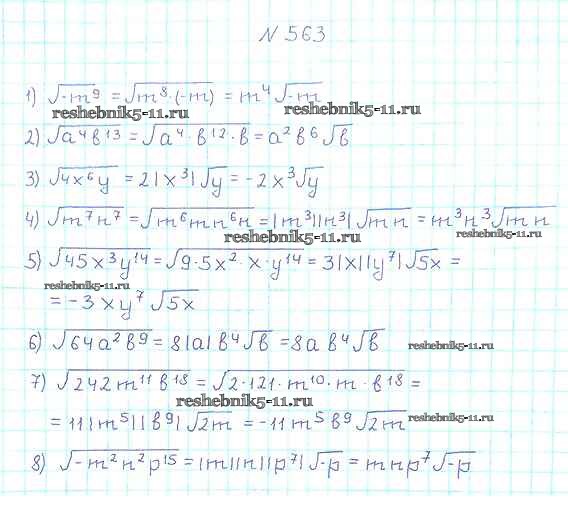 N 563
1) √-m⁹ = √m⁸·(-m) = m⁴√-m
reshebnik5-11.ru reshebnik5-11.ru
2) √a⁴b¹³ = √a⁴·b¹²·b = a²b⁶√b
3) √4x⁶y = 2|x³|√y = -2x³√y
4) √m⁷n⁷ = √m⁶mn⁶n = |m³||n³|√mn = m³n³√mn
reshebnik5-11.ru reshebnik5-11.ru
5) √45x³y¹⁴ = √9·5x²·x·y¹⁴ = 3|x||y⁷|√5x =
reshebnik5-11.ru
= -3xy⁷√5x
6) √64a²b⁹ = 8|a|b⁴√b = 8ab⁴√b
reshebnik5-11.ru
7) √242m¹¹b¹⁸ = √2·121·m¹⁰·m·b¹⁸ =
reshebnik5-11.ru
= 11|m⁵||b⁹|√2m = -11m⁵b⁹√2m
reshebnik5-11.ru
8) √-m²n²p¹⁵ = |m||n||p⁷|√-p = mnp⁷√-p